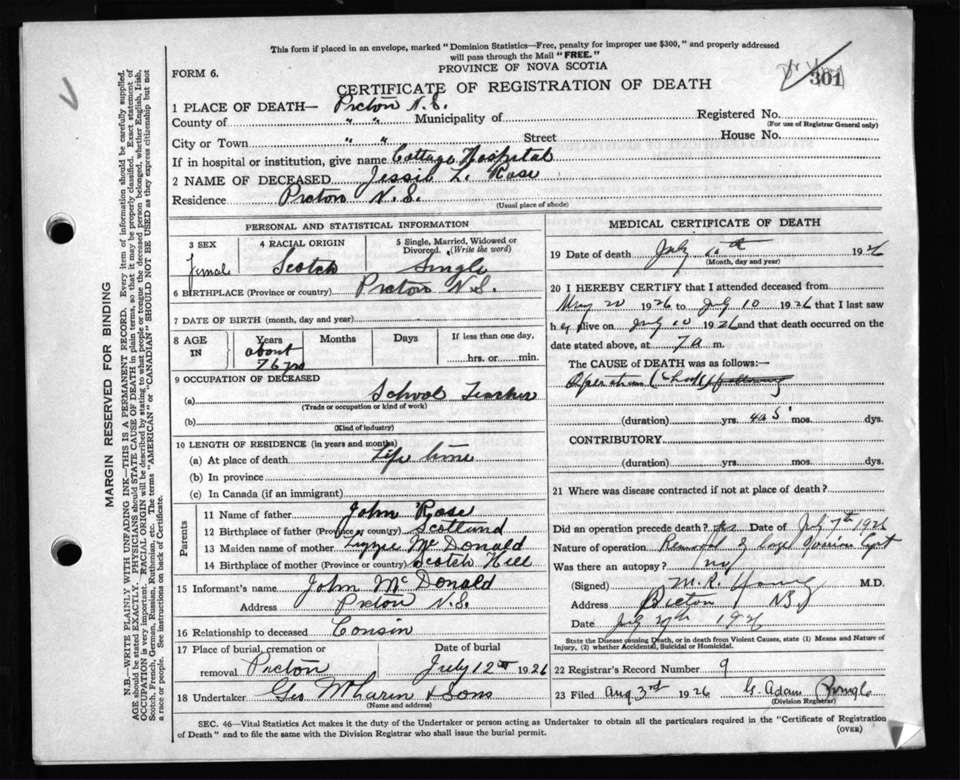 This form if placed in an envelope, marked "Dominion Statistics—Free, penalty for improper use $300," and properly addressed
will pass through the Mail "FREE."
PROVINCE OF NOVA SCOTIA
FORM 6.
301
CERTIFICATE OF REGISTRATION OF DEATH
1 PLACE OF DEATH— Pictou N.S.
County of " " Municipality of Registered No.
(For use of Registrar General only)
City or Town " " Street House No.
If in hospital or institution, give name Cottage Hospital
2 NAME OF DECEASED Jessie L. Rose
Residence Pictou N.S.
(Usual place of abode)
PERSONAL AND STATISTICAL INFORMATION
3 SEX 4 RACIAL ORIGIN 5 Single, Married, Widowed or Divorced. (Write the word)
female Scotch Single
6 BIRTHPLACE (Province or country) Pictou N.S.
7 DATE OF BIRTH (month, day and year)
8 AGE IN Years Months Days If less than one day,
about 76 yrs hrs. or min.
9 OCCUPATION OF DECEASED
(a) School Teacher
(Trade or occupation or kind of work)
(b)
(Kind of industry)
10 LENGTH OF RESIDENCE (in years and months)
(a) At place of death Life time
(b) In province
(c) In Canada (if an immigrant)
Parents
11 Name of father John Rose
12 Birthplace of father (Province or country) Scotland
13 Maiden name of mother Lizzie McDonald
14 Birthplace of mother (Province or country) Scotch Hill
15 Informant's name John McDonald
Address Pictou N.S.
16 Relationship to deceased Cousin
17 Place of burial, cremation or removal Pictou Date of burial July 12th 1926
18 Undertaker Geo & Sons
(Name and address)
MEDICAL CERTIFICATE OF DEATH
19 Date of death July 10th 1926
(Month, day and year)
20 I HEREBY CERTIFY that I attended deceased from
May 20 1926 to July 10 1926 that I last saw
h er alive on July 10 1926 and that death occurred on the
date stated above, at 7 a m.
The CAUSE OF DEATH was as follows:—
Operation (Shock) following
(duration) yrs. mos. dys.
CONTRIBUTORY
(duration) yrs. mos. dys.
21 Where was disease contracted if not at place of death?
Did an operation precede death? yes Date of July 7th 1926
Nature of operation Removal of large Ovarian Cyst
Was there an autopsy? no
(Signed) M.R. Young M.D.
Address Pictou N.S.
Date July 29th 1926
State the Disease causing Death, or in death from Violent Causes, state (1) Means and Nature of
Injury, (2) whether Accidental, Suicidal or Homicidal.
22 Registrar's Record Number 9
23 Filed Aug 3rd 1926 G. Adam Pringle
(Division Registrar)
SEC. 46—Vital Statistics Act makes it the duty of the Undertaker or person acting as Undertaker to obtain all the particulars required in the "Certificate of Registration
of Death" and to file the same with the Division Registrar who shall issue the burial permit.
(OVER)
MARGIN RESERVED FOR BINDING
N.B.—WRITE PLAINLY WITH UNFADING INK—THIS IS A PERMANENT RECORD. Every item of information should be carefully supplied.
AGE should be stated EXACTLY. PHYSICIANS should STATE CAUSE OF DEATH in plain terms, so that it may be properly classified. Exact statement of
OCCUPATION is very important. RACIAL ORIGIN will be described by stating to what people or tongue the deceased person belonged, whether English, Irish,
Scotch, French, German, Russian, Ruthenian, etc. The terms "AMERICAN" or "CANADIAN" SHOULD NOT BE USED as they express citizenship but not
a race or people. See instructions on back of Certificate.